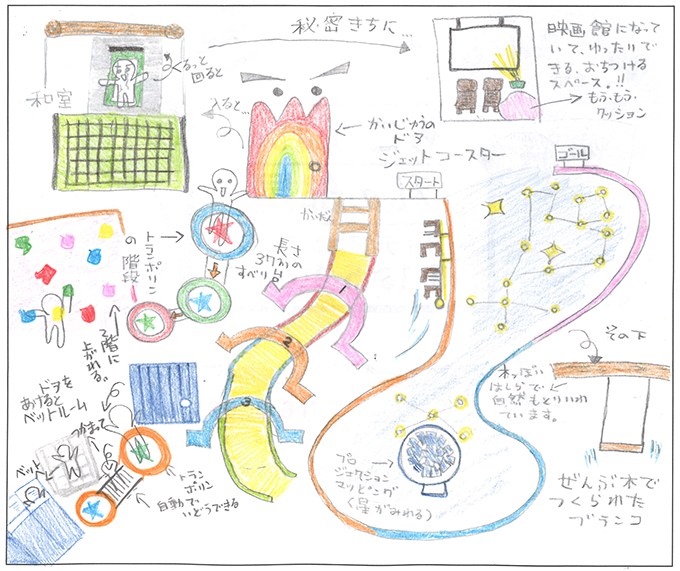 秘密きちに...
くるっと
回ると
和室
入ると...
かいじゅうの
ドア
映画館になって
いて、ゆったりで
きる、おちつける
スペース。!!
もふもふ
クッション
ジェットコースター
スタート
ゴール
トランポリン
の階段
2階に
上がれる。
かいだん
長さ
37mの
すべり台
1
2
3
その下
木っぽい
はしらで、
自然もとりいれ
ています。
ぜんぶ木で
つくられた
ブランコ
プロ
ジェクション
マッピング
(星がみれる)
ドアを
あけると
ベットルーム
つかまって
ベット
トラン
ポリン
自動で、
いどうできる